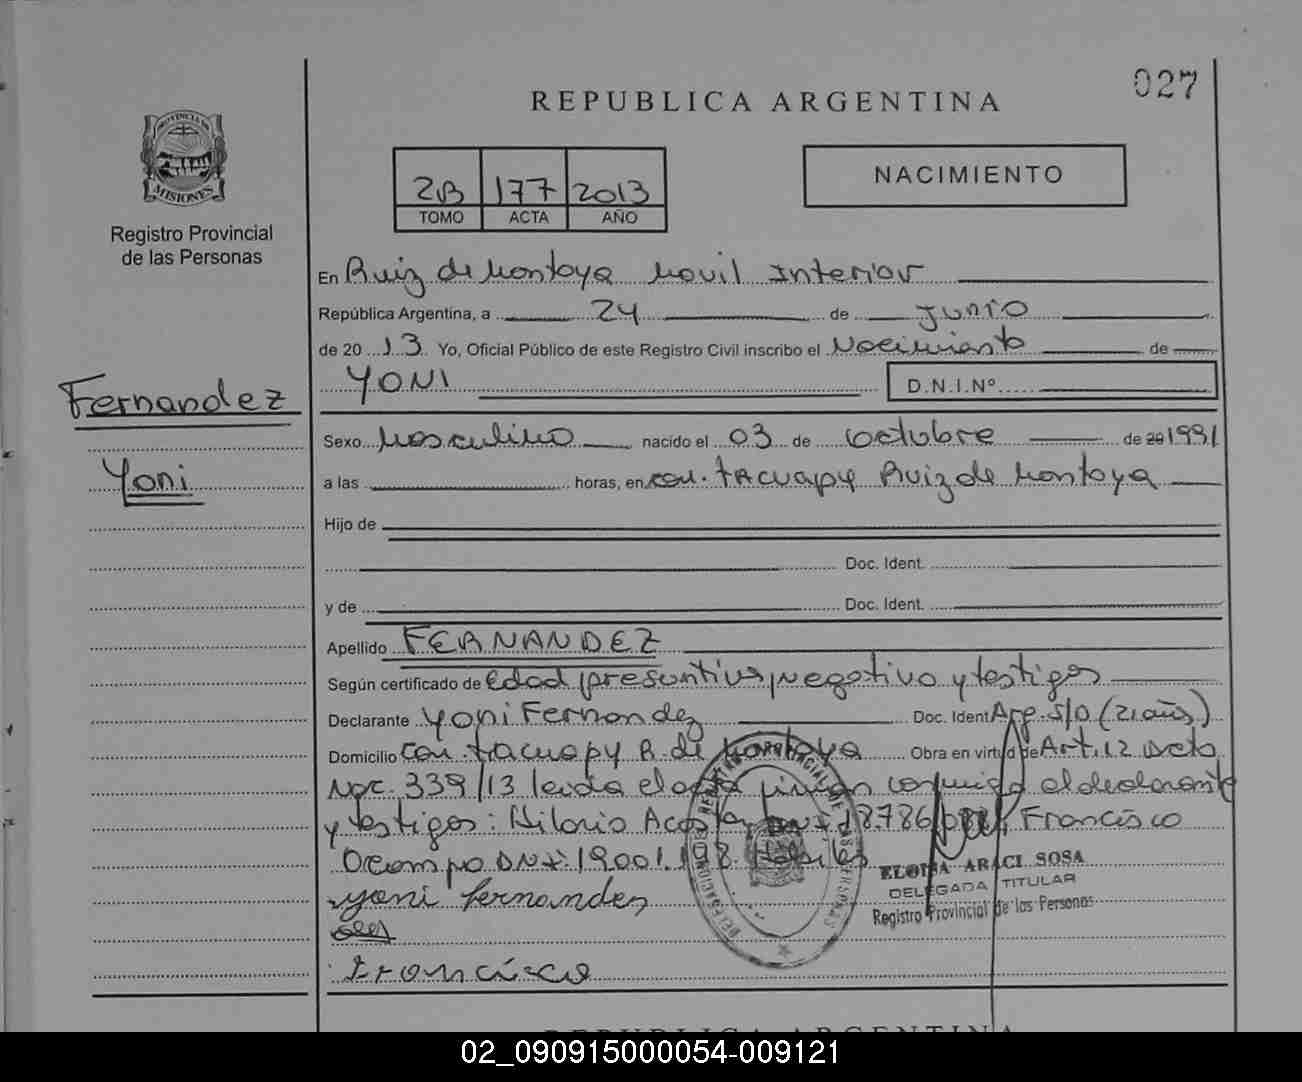 027
REPUBLICA ARGENTINA
PROVINCIA DE
MISIONES
Registro Provincial
de las Personas
2B 177 2013
TOMO ACTA AÑO
NACIMIENTO
En Ruiz de Montoya Movil Interior
República Argentina, a 24 de Junio
de 2013 Yo, Oficial Público de este Registro Civil inscribo el Nacimiento de
YONI D.N.I.Nº
Fernandez
Yoni
Sexo Masculino nacido el 03 de Octubre de 20 1991
a las horas, en Tacuapy Ruiz de Montoya
Hijo de
Doc. Ident.
y de Doc. Ident.
Apellido FERNANDEZ
Según certificado de Edad presuntiva, negativo y testigos
Declarante Yoni Fernandez Doc. Ident Arg. S/D (21 años)
Domicilio Tacuapy R. de Montoya Obra en virtud de Art. 12 Dcto
Nac. 339/13 leida el acta firman conmigo el declarante
y testigos: Hilario Acosta Francisco
Ocampo DNI: 19.001.198 Habiles
ELOISA ARACI SOSA
DELEGADA TITULAR
Registro Provincial de las Personas
yoni fernandez
Francisco
REPUBLICA ARGENTINA
02_090915000054-009121